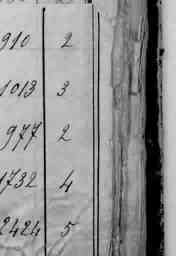 910 2
1013 3
977 2
1732 4
2424 5